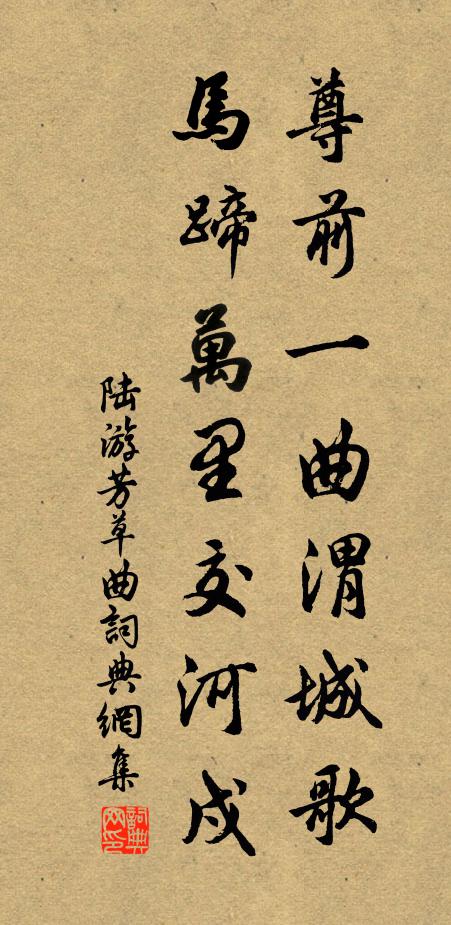 尊前一曲渭城歌
馬蹄萬里交河戍
陆游芳草曲詞典網集
詞典网印